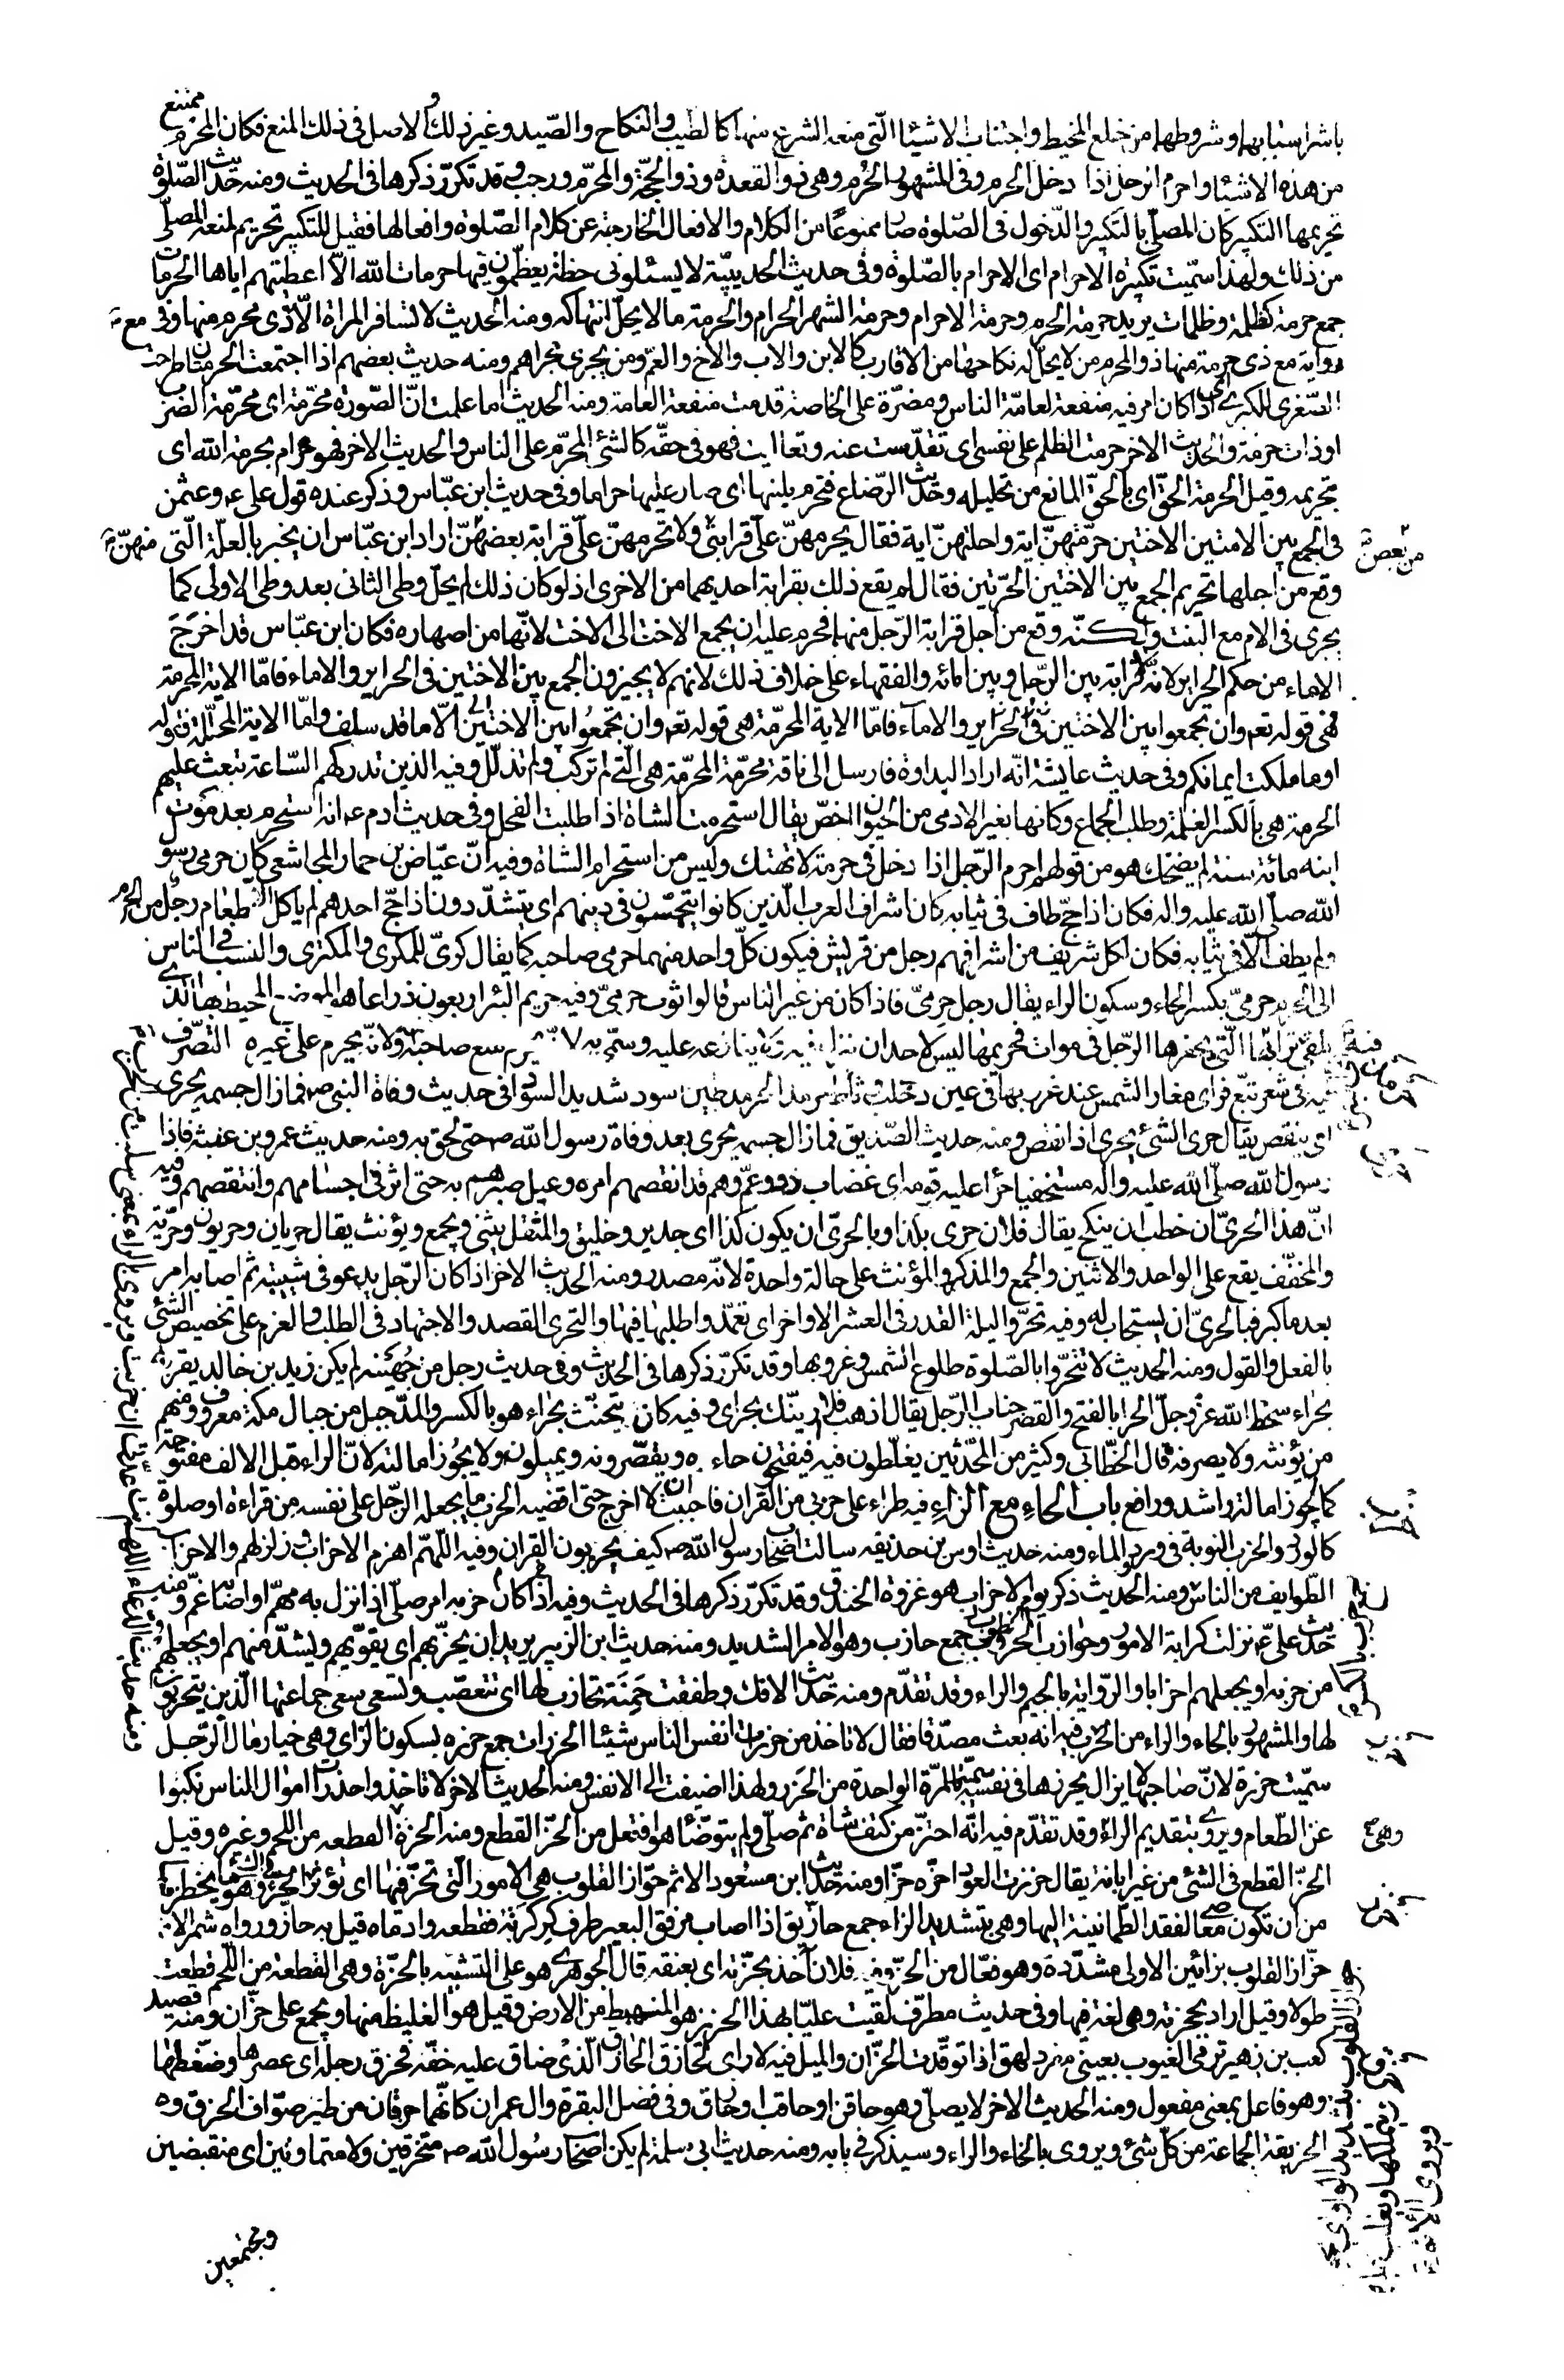 باشر اسبابهما وشروطهما من خلع المخيط واجتناب الاشياء التى منعه الشرع منها كالطيب والنكاح والصّيد وغير ذلك والاصل فى ذلك المنع فكان المحرم ممتنع
من هذه الاشياء واحرم الرجل اذا دخل الحرم وفى المشهور الحُرم وهى ذو القعدة وذو الحجّة والمحرّم ورجب وقد تكرّر ذكرها فى الحديث ومنه حديث الصّلوة
تحريمها التكبير كان المصلّى بالتكبير والدّخول فى الصّلوة صار ممنوعًا من الكلام والافعال الخارجة عن كلام الصّلوة وافعالها فقيل للتكبير تحريم لمنعه المصلّى
من ذلك ولهذا سمّيت تكبيرة الاحرام اى الاحرام بالصّلوة وفى حديث الحديبيّة لا يسئلونى خطة يعظّمون فيها حرمات الله الّا اعطيتهم اياها الحرمات
جمع حرمة كظلمة وظلمات يريد حرمة الحرم وحرمة الاحرام وحرمة الشهر الحرام والحرمة ما لا يحلّ انتهاكه ومنه الحديث لا تسافر المراة الّا مع ذى محرم منها وفى
رواية مع ذى حرمة منها ذو المحرم من لا يحلّ له نكاحها من الاقارب كالابن والاب والاخ والعمّ ومن يجرى مجراهم ومنه حديث بعضهم اذا اجتمعت الحرمتان طرحت
الصّغرى للكبرى اى اذا كان امر فيه منفعة لعامّة الناس ومضرّة على الخاصة قدمت منفعة العامة ومنه الحديث اما علمت انّ الصّورة محرّمة اى محرّمة الضرب
او ذات حرمة والحديث الاخر حرمت الظلم على نفسى اى تقدّست عنه وتعاليت فهو فى حقّه كالشئ المحرّم على الناس والحديث الاخر فهو حرام بحرمة الله اى
بتحريمه وقيل الحرمة الحقّ اى بالحقّ المانع من تحليله وحديث الرّضاع فتحرم بلبنها اى صار عليها حراما وفى حديث ابن عبّاس وذكر عنده قول على عم وعثمن
فى الجمع بين الامتين الاختين حرّمتهنّ اية واحلّتهنّ اية فقال يحرمهنّ علىّ قرابتى منهنّ ولا تحرمهنّ علىّ قرابة بعضهنّ من بعض اراد ابن عبّاس ان يخبر بالعلّة الّتى
وقع من اجلها تحريم الجمع بين الاختين الحرّتين فقال لم يقع ذلك بقرابة احديهما من الاخرى اذ لو كان ذلك لم يحلّ وطى الثانى بعد وطى الاولى كما
يجرى فى الام مع البنت ولكنّه وقع من اجل قرابة الرّجل منهما فحرم عليه ان يجمع الاخت الى الاخت لانّها من اصهاره فكان ابن عبّاس قد اخرَجَ
الاماء من حكم الحراير لانّه لا قرابة بين الرّجل وبين امائه والفقهاء على خلاف ذلك لانهم لا يجيزون الجمع بين الاختين فى الحراير والاماء فامّا الاية المحرمة
فهى قوله تعم وان تجمعوا بين الاختين فى الحراير والاماء فامّا الاية المحرّمة هى قوله تعم وان تجمعُوا بين الاختين الّا ما قد سلف وامّا الاية المحلّلة فقوله
او ما ملكت ايمانكم وفى حديث عايشة انّه اراد البداوة فارسل الى ناقة محرّمة المحرّمة هى الّتى لم تركب ولم تذلّل وفيه الذين تدركهم السّاعة تبعث عليهم
الحرمة هى بالكسر الغلمة وطلب الجماع وكانها بغير الادمى من الحيوان اخصّ يقال استحرمت الشاة اذا طلبت الفحل وفى حديث ادم عم انه استحرم بعد موت
ابنه مائة سنة لم يضحك هو من قولهم احرم الرّجل اذا دخل فى حرمة لا تهتك وليس من استحرام الشاة وفيه انّ عيّاض بن حمار المجاشعى كان حرمى رسول
الله صلّى الله عليه واله فكان اذا حجّ طاف فى ثيابه كان اشراف العرب الّذين كانوا يتحمّسون فى دينهم اى يتشدّدون اذا حجّ احدهم لم ياكل الّا طعام رجُل من الحرم
ولم يطف الّا فى ثيابه فكان لكل شريف من اشرافهم رجل من قريش فيكون كلّ واحد منهما حرمى صاحبه كما يقال كرىّ للمكرى والمكترى والنسب فى الناس
الى الحرم حرمىّ بكسر الحاء وسكون الراء يقال رجل حرمىّ فاذا كان من غير الناس قالوا ثوب حرمىّ وفيه حريم البئر اربعون ذراعا هو الموضع المحيط بها الّذى
يلقى فيه ترابها الّتى يحفرها الرّجل فى موات فحريمها ليس لاحد ان ينزل فيه ولا ينازعه عليه وسمّى به لانّه يحرم منع صاحبه ولانّه يحرم على غيره التصرّف
فيه فى شعر تبّع فراى مغار الشمس عند غروبها فى عين ذى خلب وثاط حرمد الحرمد طين اسود شديد السّواد فى حديث وفاة النبى صم فما زال جسمه يحرى
اى ينقص يقال حرى الشئ يحرى اذا نقص ومنه حديث الصّدّيق فما زال جسمه يحرى بعد وفاة رسول الله صم حتى لحق به ومنه حديث عمرو بن عنبثه فاذا
رسول الله صلّى الله عليه واله مستخفيا حرّاء عليه قومه اى غضاب ذوو غمّ وهم قد انتقصهم امره وعيل صبرهم به حتى اثر فى اجسامهم وانتقصهم وفيه
انّ هذا الحرىّ ان خطب ان ينكح يقال فلان حرى بكذا وبالحرىّ ان يكون كذا اى جدير وخليق والمثقل يثنى ويجمع ويؤنث يقال حريان وحريون وحريّة
والمخفّف يقع على الواحد والاثنين والجمع والمذكر والمؤنث على حالة واحدة لانّه مصدر ومنه الحديث الاخر اذا كان الرّجل يدعو فى شبيبته ثم اصابه امر
بعد ما كبر فبالحرىّ ان يستجاب له وفيه تحرّوا ليلة القدر فى العشر الاواخر اى تعمّدوا طلبها فيها والتحرى القصد والاجتهاد فى الطلب والعزم على تخصيص الشئ
بالفعل والقول ومنه الحديث لا تتحرّوا بالصّلوة طلوع الشمس وغروبها وقد تكرّر ذكرها فى الحديث وفى حديث رجل من جُهَينه لم يكن زيد بن خالد يقربه
بحراء سخط الله عزّوجلّ الحرا بالفتح والقصر جناب الرّجل يقال اذهب فلا ارينّك بحراى وفيه كان يتحنّث بحراء هو بالكسر والمدّ جبل من جبال مكة معروف ومنهم
من يؤنثه ولا يصرفه قال الخطّابى وكثير من المحدّثين يغلّطون فيه فيفتحون حاءه ويقصّرونه ويميلونه ولا يجوز امالته لانّ الراء قبل الالف مفتوحة
كما لا يجوز امالة راشد ورافع باب الحاء مع الزاء فيه طراء على حزبى من القران فاحببت ان لا اخرج حتى اقضيه الحزب ما يجعله الرّجل على نفسه من قراءة او صلوة
كالورد والحزب النوبة فى ورد الماء ومنه حديث اوس بن حذيفه سالت اصحاب رسول الله صم كيف يحزبون القران وفيه اللّهمّ اهزم الاحزاب وزلزلهم والاحزاب
الطّوايف من الناس ومنه الحديث ذكر يوم الاحزاب هو غزوة الخندق وقد تكرّر ذكرها فى الحديث وفيه اذا كان حزبه امر صلّى اذا نزل به مهمّ او اصابه غمّ ومنه
حديث علىّ عم نزلت كرايه الامور وحوازب الخطوب جمع حازب وهو الامر الشديد ومنه حديث ابن الزبير يريد ان يحزّبهم اى يقوّيهم ويشدّ منهم او يجعلهم
من حزبه او يجعلهم احزابا والرّواية بالجيم والراء وقد تقدّم ومنه حديث الافك وطفقت حَمِنَة تحازب لها اى تتعصّب وتسعى سعى جماعتها الّذين يتحزبون
لها والمشهور بالحاء والراء من الحرب فيه انه بعث مصدّقا فقال لا تاخذ من حزرات انفس الناس شيئا الحزرات جمع حزره بسكون الزاى وهى خيار مال الرّجل
سمّيت حزرة لانّ صاحبها لا يزال يحزرها فى نفسه سمّيت بالمرّة الواحدة من الحَزر ولهذا اضيفت الى الانفس ومنه الحديث الاخر لا تاخذوا حزرات اموال الناس نكبوا
عن الطّعام ويروى بتقديم الراء وقد تقدّم فيه انّه احتزّ من كتف شاة ثم صلّى ولم يتوضّأ هو افتعل من الحزّ القطع ومنه الحزة القطعه من اللحم وغيره وقيل
الحزّ القطع فى الشئ من غير ابانة يقال حززت العود احزّه حزّا ومنه حديث ابن مسعود الاثم حوّاز القلوب هى الامور الّتى تحزّ فيها اى تؤثر كما يؤثر الحزّ فى الشئ وهو ما يخطر
من ان تكون معاصى لفقد الطّمانينة اليها وهى بتشديد الزاء جمع حازّ يق اذا اصاب مرفق البعير طرف كركرته فقطعه وادماه قيل به حازّ ورواه شمر الاثم
حزّاز القلوب بزائين الاولى مشدّدة وهو فعّال من الحزّ وفيه فلان آخذ بحزّته اى بعنقه قال الجوهرى هو على التشبيه بالحزّة وهى القطعة من اللّحم قطعت
طولا وقيل اراد بحجزته وهى لغة فيها وفى حديث مطرّف لقيت عليّا بهذا الحزيز هو المنهبط من الارض وقيل هو الغليظ منها ويجمع على حزّان ومنه قصيد
كعب بن زهير ترمى الغيوب بعينى مفرد لهق اذا توقّدت الحزّان والميل فيه لا راى لحازق الحازق الّذى ضاق عليه خفّه فحزق رجله اى عصرها وضغطها
وهو فاعل بمعنى مفعول ومنه الحديث الاخر لا يصلّى وهو حاقن او حاقب او حازق وفى فضل البقرة وال عمران كانّهما حزقان من طير صوّاف الحزق وه
الحزيقة الجماعة من كلّ شئ ويروى بالخاء والراء وسيذكر فى بابه ومنه حديث ابى سلمة لم يكن اصحاب رسُول الله صم متحزقين ولا متماوتين اى منقبضين
ومجتمعين